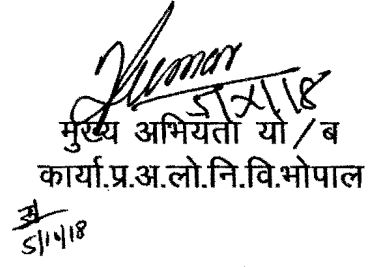 Kumar
5/X/18
मुख्य अभियंता यो/ब
कार्या.प्र.अ.लो.नि.वि.भोपाल
5/10/18